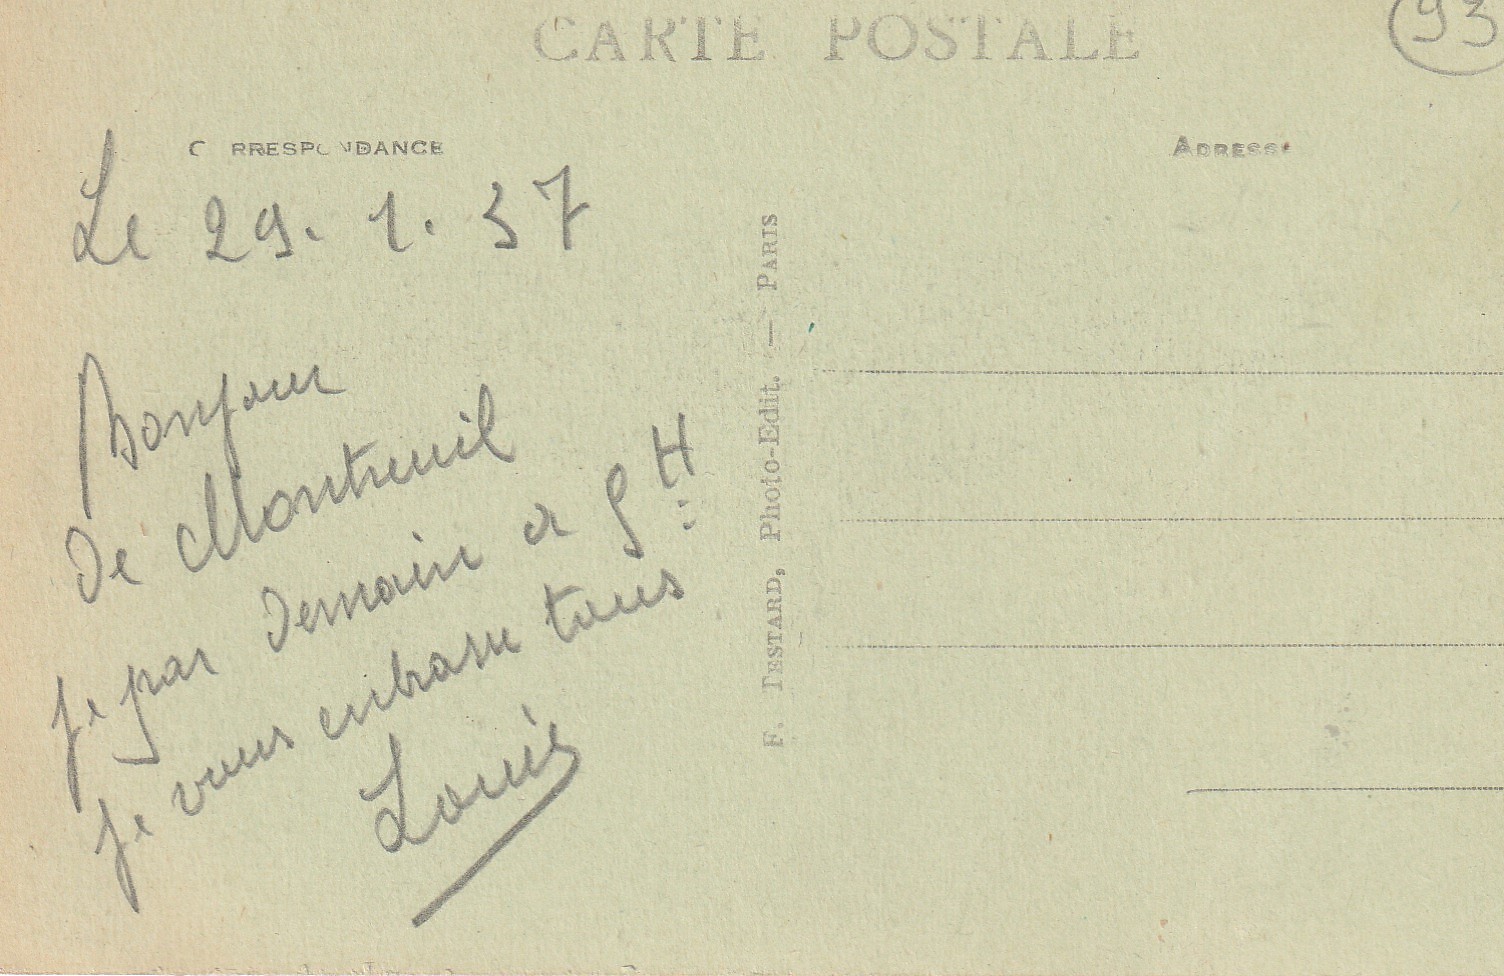 CARTE POSTALE
93
CORRESPONDANCE
ADRESSE
Le 29. 1. 37
Bonjour
de Montreuil
je par demain a 9H
je vous enbasse tous
Louis
F. TESTARD, Photo-Edit. — PARIS